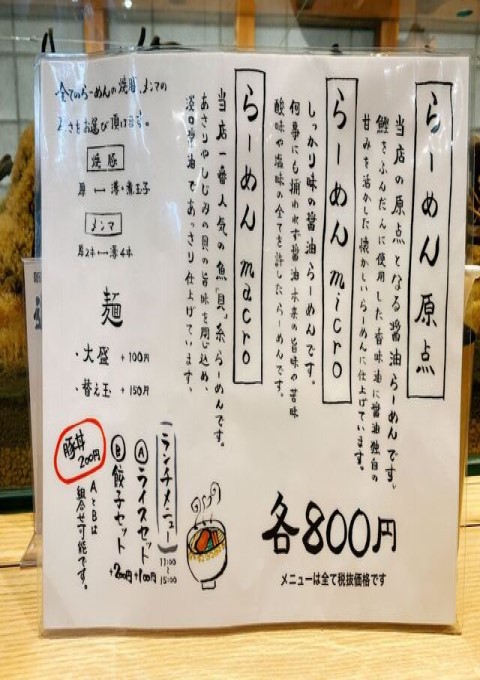 らーめん 原点
当店の原点となる醤油らーめんです。
鰹をふんだんに使用した香味油に醤油独自の
甘みを活かした懐かしいらーめんに仕上げています。
らーめん micro
しっかり味の醤油らーめんです。
何事にも捕われず醤油本来の旨味や苦味
酸味や塩味の全てを許したらーめんです。
らーめん macro
当店一番人気の魚「貝」系らーめんです。
あさりやしじみの貝の旨味を閉じ込め、
淡口醤油であっさり仕上げています。
全てのらーめんの焼豚、メンマの
厚さをお選び頂けます。
焼豚
厚 ⟷ 薄・煮玉子
メンマ
厚2本⟷薄4本
麺
・大盛 +100円
・替え玉 +150円
各800円
メニューは全て税抜価格です
ランチメニュー
11:00
~
15:00
Ⓐライスセット +100円
Ⓑ餃子セット +200円
AとBは
組合せ可能です。
豚丼
200円